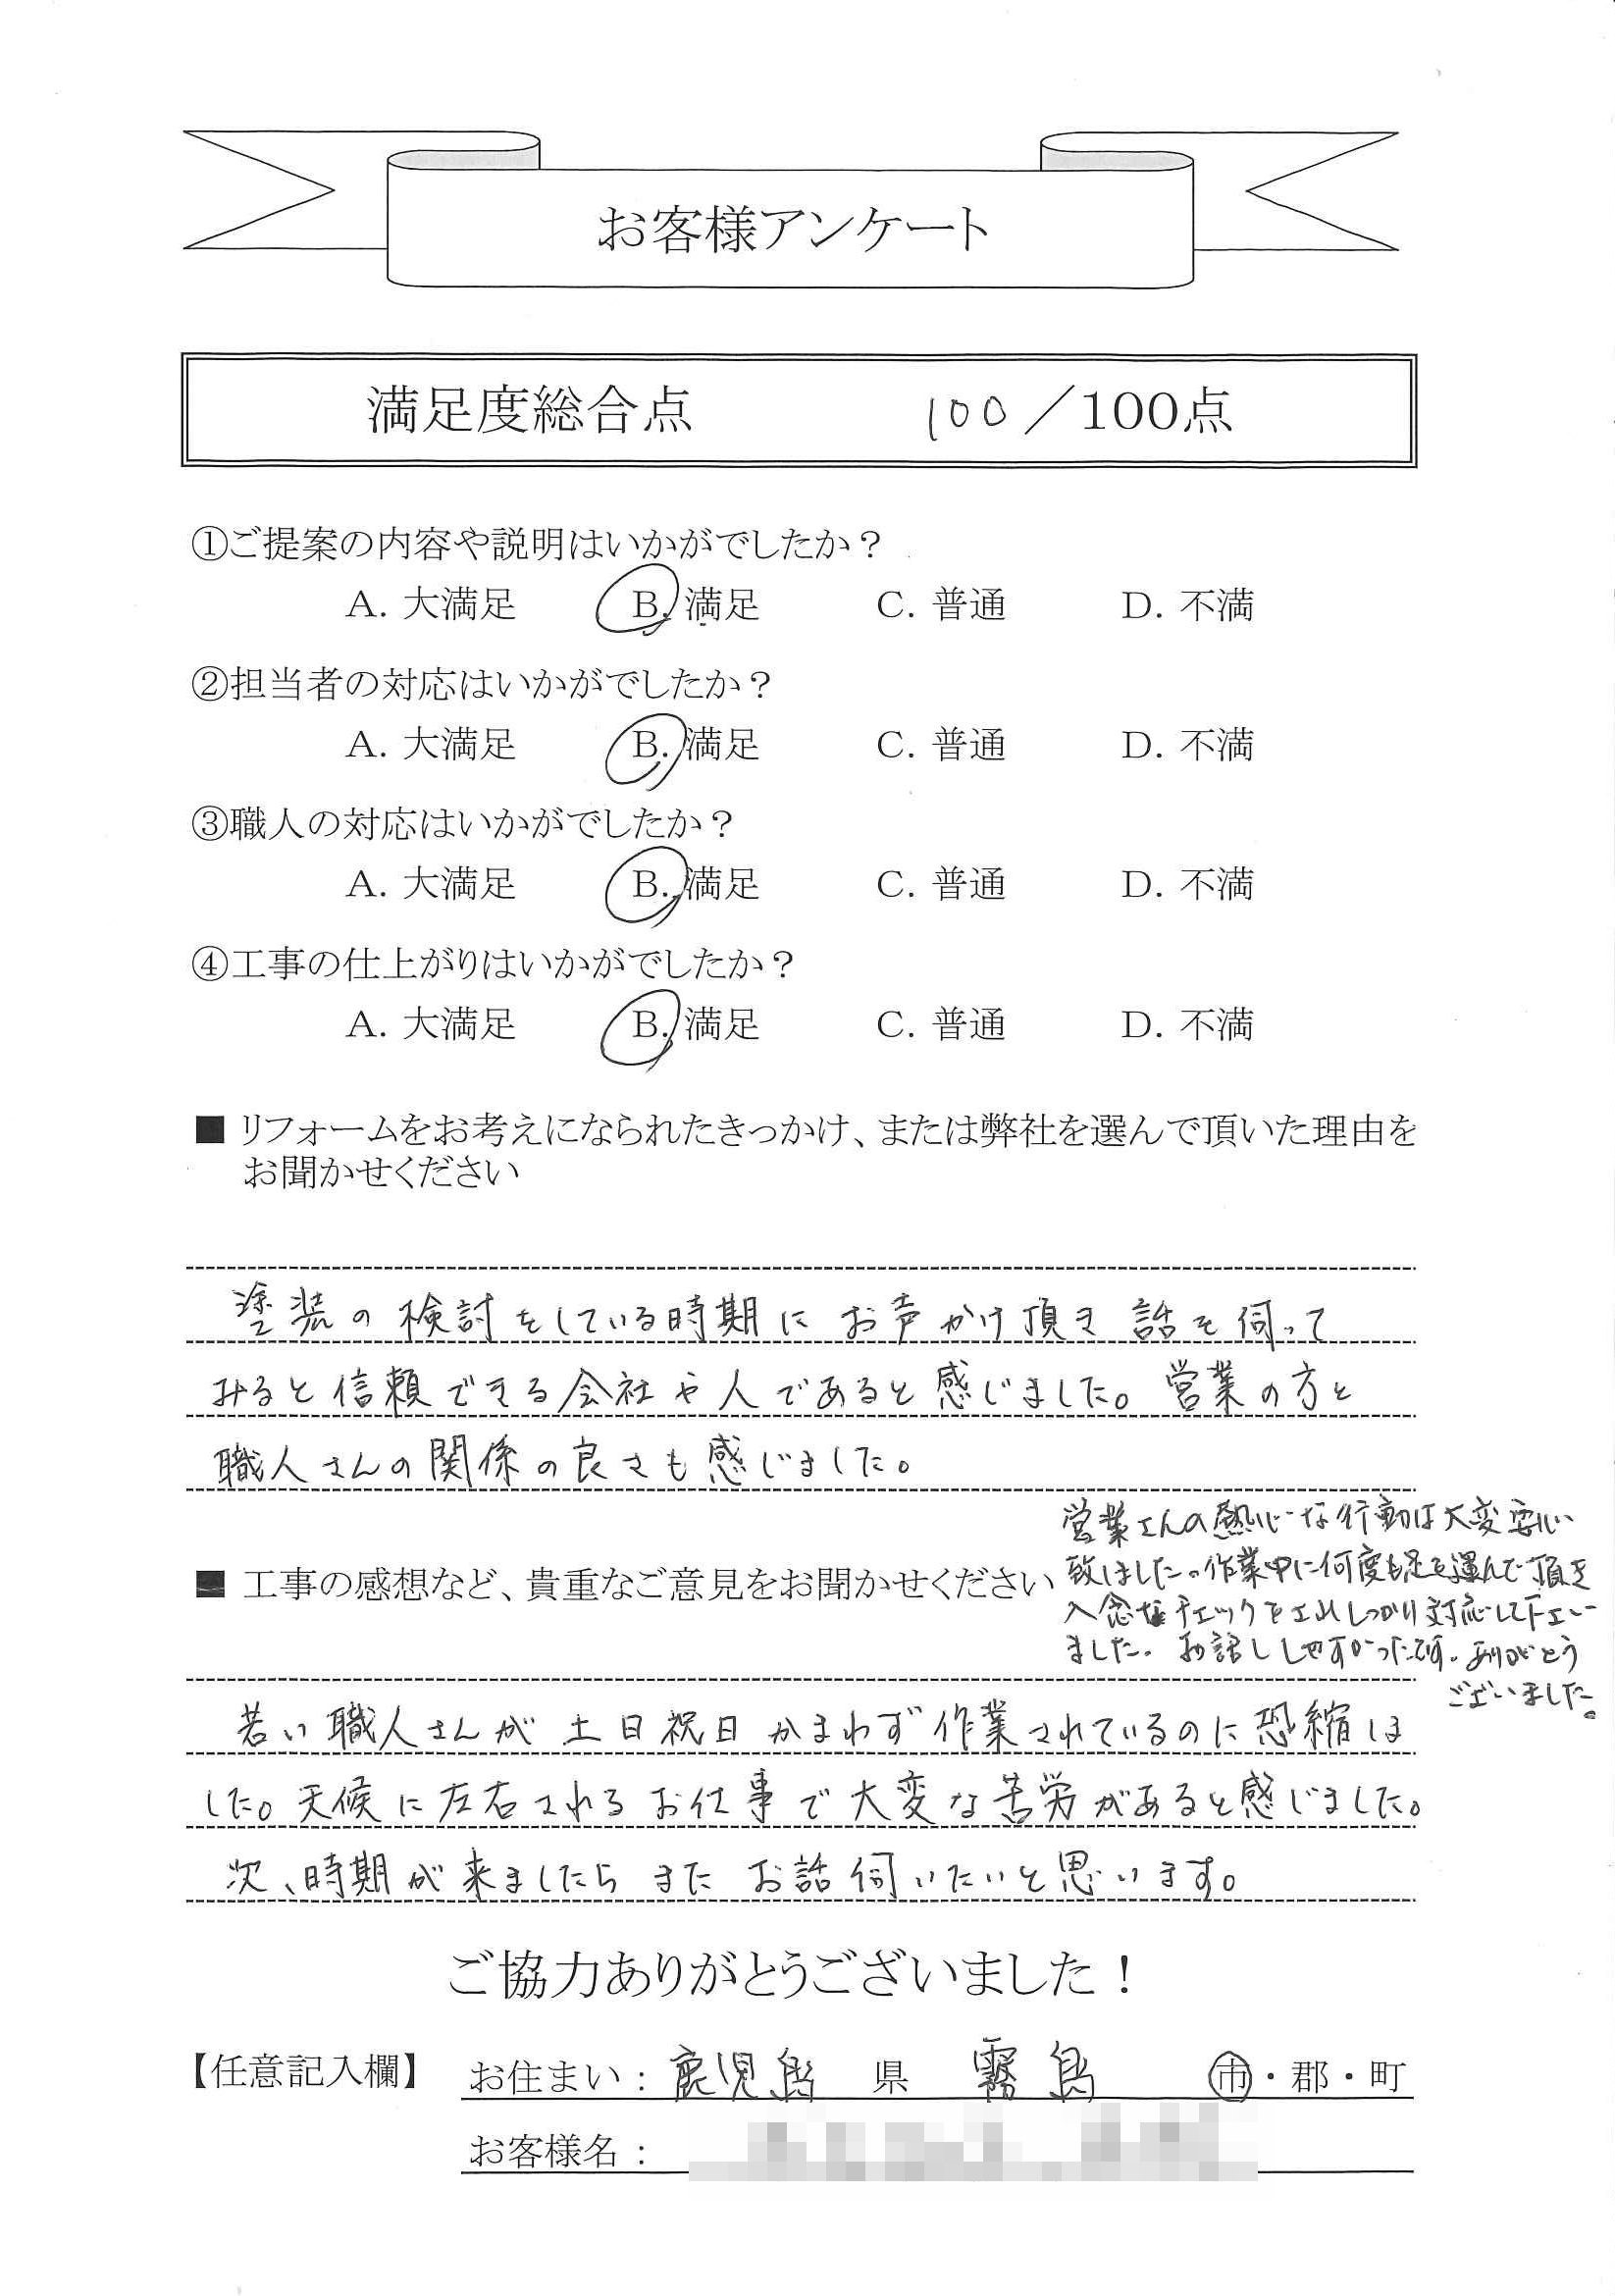 お客様アンケート
満足度総合点 100／100点
①ご提案の内容や説明はいかがでしたか？
A. 大満足 B. 満足 C. 普通 D. 不満
②担当者の対応はいかがでしたか？
A. 大満足 B. 満足 C. 普通 D. 不満
③職人の対応はいかがでしたか？
A. 大満足 B. 満足 C. 普通 D. 不満
④工事の仕上がりはいかがでしたか？
A. 大満足 B. 満足 C. 普通 D. 不満
■ リフォームをお考えになられたきっかけ、または弊社を選んで頂いた理由を
お聞かせください
塗装の検討をしている時期に お声かけ頂き 話を伺って
みると信頼できる会社や人であると感じました。営業の方と
職人さんの関係の良さも感じました。
■ 工事の感想など、貴重なご意見をお聞かせください
営業さんの熱心な行動は大変安心
致しました。作業中に何度も足を運んで頂き
入念なチェックを しっかり対応して下さい
ました。お話ししやすかったです。ありがとう
ございました。
若い職人さんが 土日祝日かまわず作業されているのに恐縮しま
した。天候に左右されるお仕事で大変な苦労があると感じました。
次、時期が来ましたら また お話伺いたいと思います。
ご協力ありがとうございました！
【任意記入欄】 お住まい：鹿児島 県 霧島 市・郡・町
お客様名：